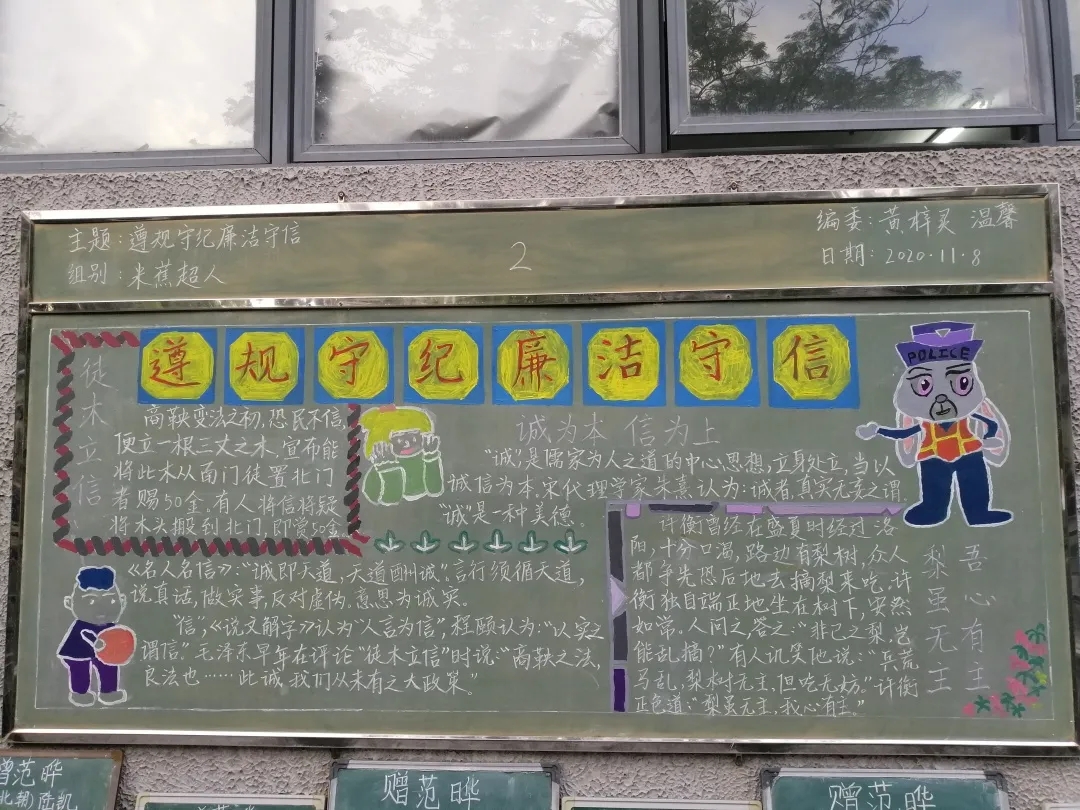 主题：遵规守纪廉洁守信
组别：米蕉超人
2
编委：黄梓灵 温馨
日期：2020·11·8
遵规守纪廉洁守信
POLICE
徒木立信
商鞅变法之初，恐民不信，
便立一根三丈之木，宣布能
将此木从南门徒置北门
者赐50金。有人将信将疑
将木头搬到北门，即赏50金
诚为本 信为上
"诚"，是儒家为人之道的中心思想，立身处立，当以
诚信为本。宋代理学家朱熹认为：诚者，真实无妄之谓。
"诚"是一种美德。
《名人名信》："诚即天道，天道酬诚"。言行须循天道，
说真话，做实事，反对虚伪。意思为诚实。
"信"，《说文解字》认为"人言为信"，程颐认为："以实之
谓信。"毛泽东早年在评论"徒木立信"时说："商鞅之法，
良法也……此诚我们从未有之大政策。"
许衡曾经在盛夏时经过洛
阳，十分口渴，路边有梨树，众人
都争先恐后地去摘梨来吃，许
衡独自端正地坐在树下，安然
如常。人问之，答之："非己之梨，岂
能乱摘？"有人讥笑他说："兵荒
马乱，梨树无主，但吃无妨。"许衡
正色道："梨虽无主，我心有主。"
吾心有主
梨虽无主
赠范晔
北朝）陆凯
赠范晔
赠范晔